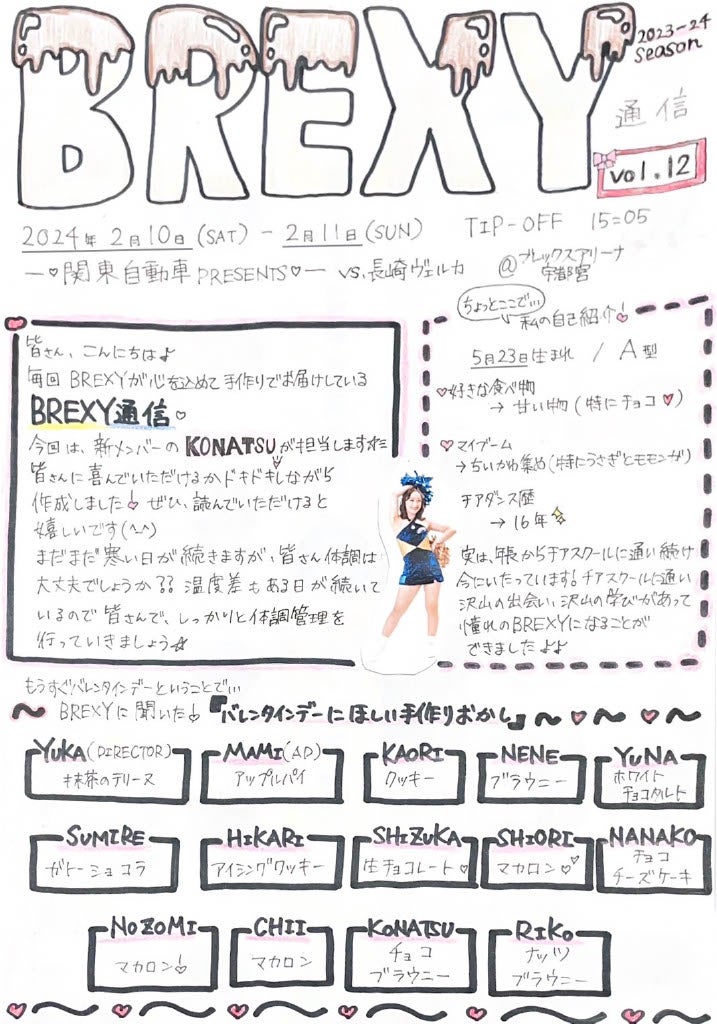 BREXY
2023-24
season
通信
vol.12
2024年 2月10日(SAT) - 2月11日(SUN) TIP-OFF 15:05
ー♡関東自動車PRESENTS♡ー VS.長崎ヴェルカ @ブレックスアリーナ
宇都宮
皆さん、こんにちは♪
毎回 BREXYが心を込めて手作りでお届けしている
BREXY通信♡
今回は、新メンバーの KONATSUが担当します
皆さんに喜んでいただけるかドキドキしながら
作成しました! ぜひ、読んでいただけると
嬉しいです(^-^)
まだまだ寒い日が続きますが、皆さん体調は
大丈夫でしょうか?? 温度差もある日が続いて
いるので皆さんで、しっかりと体調管理を
行っていきましょう☆
ちょっとここで...
私の自己紹介!
5月23日生まれ / A型
♡好きな食べ物
→ 甘い物(特にチョコ♥)
♡マイブーム
→ちいかわ集め(特にうさぎとモモンガ)
チアダンス歴
→ 16年
実は、年長からチアスクールに通い続け
今にいたっています!チアスクールに通い
沢山の出会い、沢山の学びがあって
憧れのBREXYになることが
できました♪♪
もうすぐバレンタインデーということで...
〜 BREXYに聞いた!『バレンタインデーにほしい手作りおかし』〜♡〜♡〜
YUKA(DIRECTOR) MAMI(AD) KAORI NENE YUNA
抹茶のテリーヌ アップルパイ クッキー ブラウニー ホワイト
チョコタルト
SUMIRE HIKARI SHIZUKA SHIORI NANAKO
ガトーショコラ アイシングクッキー 生チョコレート♡ マカロン♡ チョコ
チーズケーキ
NOZOMI CHII KONATSU RIKO
マカロン! マカロン チョコ ナッツ
ブラウニー ブラウニー